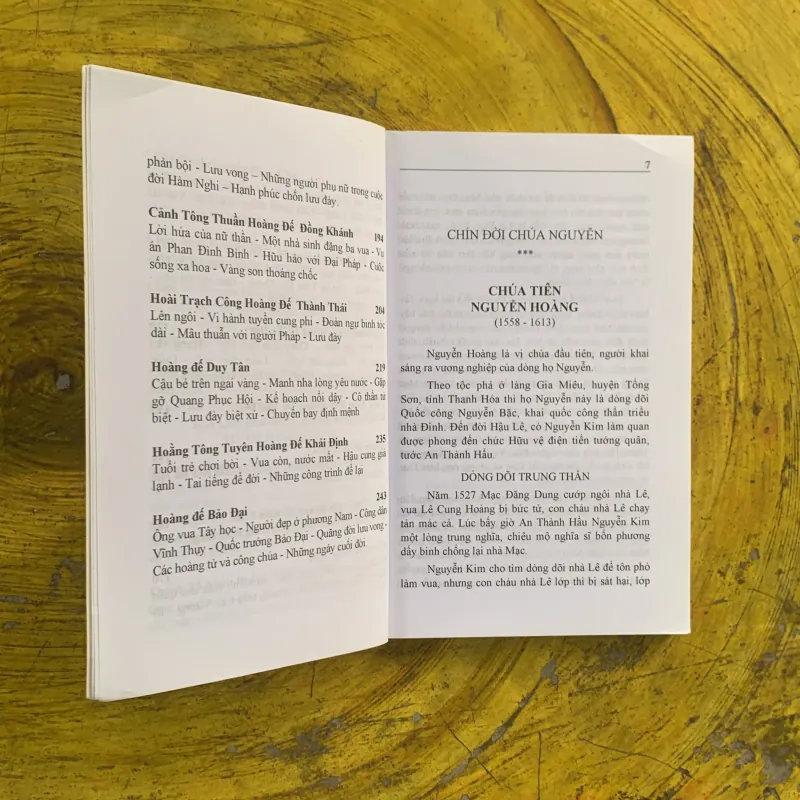 phản bội - Lưu vong – Những người phụ nữ trong cuộc
đời Hàm Nghi – Hạnh phúc chốn lưu đày.
Cảnh Tông Thuần Hoàng Đế Đồng Khánh 194
Lời hứa của nữ thần - Một nhà sinh đặng ba vua - Vụ
án Phan Đình Bình - Hữu hảo với Đại Pháp - Cuộc
sống xa hoa - Vàng son thoáng chốc
Hoài Trạch Công Hoàng Đế Thành Thái 204
Lên ngôi - Vi hành tuyển cung phi - Đoàn ngự binh tóc
dài - Mâu thuẫn với người Pháp - Lưu đày
Hoàng đế Duy Tân 219
Cậu bé trên ngai vàng - Manh nha lòng yêu nước - Gặp
gỡ Quang Phục Hội - Kế hoạch nổi dậy - Cô thần tử
biệt - Lưu đày biệt xứ - Chuyến bay định mệnh
Hoằng Tông Tuyên Hoàng Đế Khải Định 235
Tuổi trẻ chơi bời - Vua còn, nước mất - Hậu cung giá
lạnh - Tai tiếng để đời - Những công trình để lại
Hoàng đế Bảo Đại 243
Ông vua Tây học - Người đẹp ở phương Nam - Công dân
Vĩnh Thụy - Quốc trưởng Bảo Đại - Quãng đời lưu vong -
Các hoàng tử và công chúa - Những ngày cuối đời.
7
CHÍN ĐỜI CHÚA NGUYỄN
***
CHÚA TIÊN
NGUYỄN HOÀNG
(1558 - 1613)
Nguyễn Hoàng là vị chúa đầu tiên, người khai
sáng ra vương nghiệp của dòng họ Nguyễn.
Theo tộc phả ở làng Gia Miêu, huyện Tống
Sơn, tỉnh Thanh Hóa thì họ Nguyễn này là dòng dõi
Quốc công Nguyễn Bặc, khai quốc công thần triều
nhà Đinh. Đến đời Hậu Lê, có Nguyễn Kim làm quan
được phong đến chức Hữu vệ điện tiền tướng quân,
tước An Thành Hầu.
DÒNG DÕI TRUNG THẦN
Năm 1527 Mạc Đăng Dung cướp ngôi nhà Lê,
vua Lê Cung Hoàng bị bức tử, con cháu nhà Lê chạy
tản mác cả. Lúc bấy giờ An Thành Hầu Nguyễn Kim
một lòng trung nghĩa, chiêu mộ nghĩa sĩ bốn phương
dấy binh chống lại nhà Mạc.
Nguyễn Kim cho tìm dòng dõi nhà Lê để tôn phò
làm vua, nhưng con cháu nhà Lê lớp thì bị sát hại, lớp